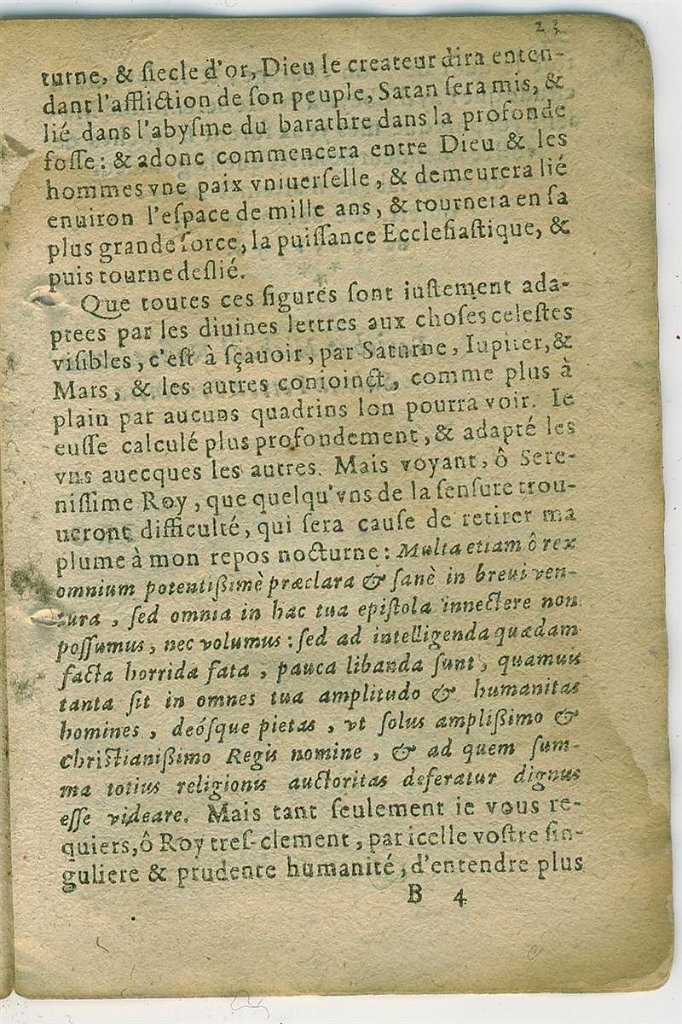 23
turne, & ſiecle d'or, Dieu le createur dira enten-
dant l'affliction de ſon peuple, Satan ſera mis, &
lié dans l'abyſme du barathre dans la profonde
foſſe: & adonc commencera entre Dieu & les
hommes vne paix vniuerſelle, & demeurera lié
enuiron l'eſpace de mille ans, & tournera en ſa
plus grande force, la puiſſance Eccleſiaſtique, &
puis tourne deſlié.
Que toutes ces figures ſont iuſtement ada-
ptees par les diuines lettres aux choſes celeſtes
viſibles, c'eſt à ſçauoir, par Saturne, Iupiter, &
Mars, & les autres conioinct, comme plus à
plain par aucuns quadrins lon pourra voir. Ie
euſſe calculé plus profondement, & adapté les
vns auecques les autres. Mais voyant, ô Sere-
niſſime Roy, que quelqu'vns de la ſenſure trou-
ueront difficulté, qui ſera cauſe de retirer ma
plume à mon repos nocturne: Multa etiam ô rex
omnium potentißimè præclara & ſanè in breui ven-
tura, ſed omnia in hac tua epiſtola innectere non
poſſumus, nec volumus: ſed ad intelligenda quædam
facta horrida fata, pauca libanda ſunt, quamuis
tanta ſit in omnes tua amplitudo & humanitas
homines, deóſque pietas, vt ſolus amplißimo &
Chriſtianißimo Regis nomine, & ad quem ſum-
ma totius religionis auctoritas deferatur dignus
eſſe videare. Mais tant ſeulement ie vous re-
quiers, ô Roy treſ-clement, par icelle voſtre ſin-
guliere & prudente humanité, d'entendre plus
B 4